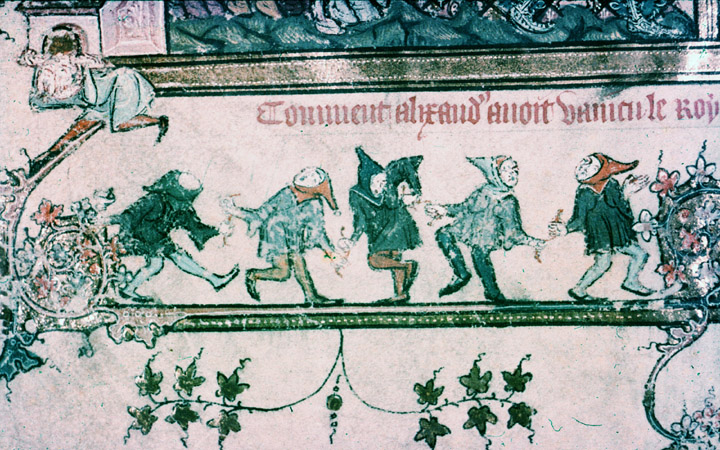 Comment alixand' auoit vaincu le roy